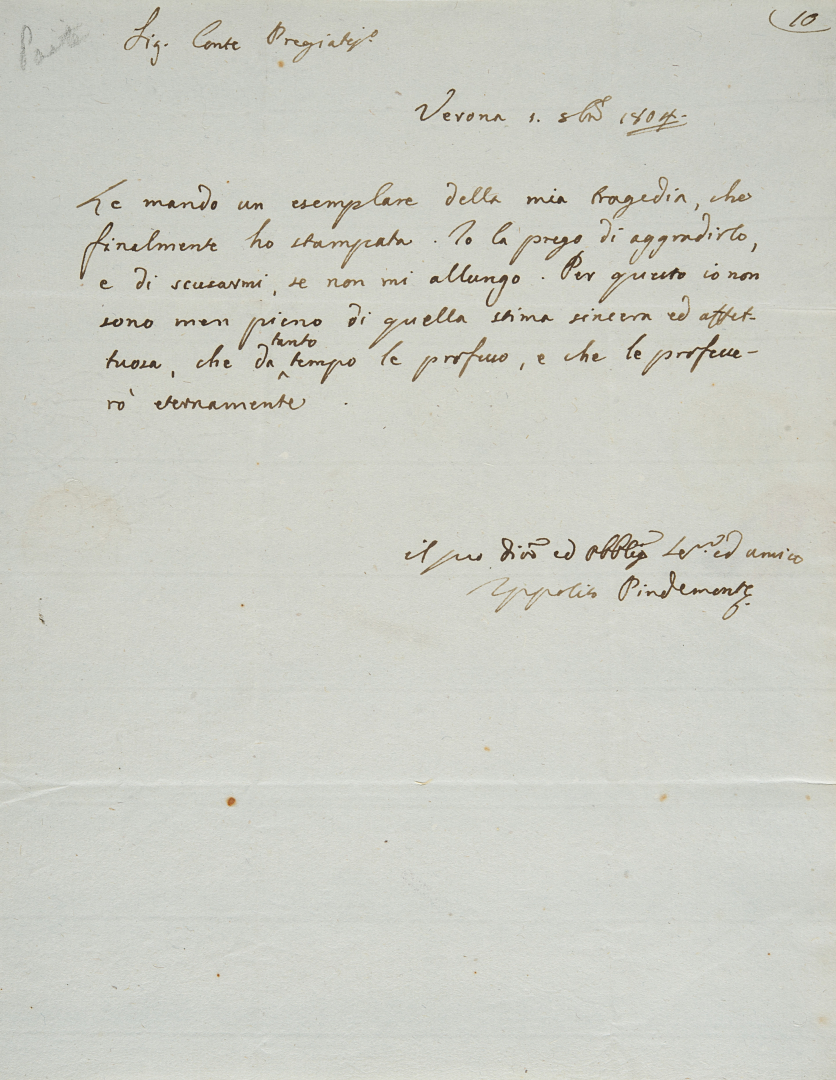 10
Sig. Conte Pregiatis.º
Verona 1. 8bre 1804.
Le mando un esemplare della mia tragedia, che
finalmente ho stampata. Io la prego di aggradirlo,
e di scusarmi, se non mi allungo. Per questo io non
sono men pieno di quella stima sincera ed affet-
tuosa, che da tanto tempo le professo, e che le professe-
rò eternamente.
il suo Divo ed obbligo Serre ed amico
Ippolito Pindemonte